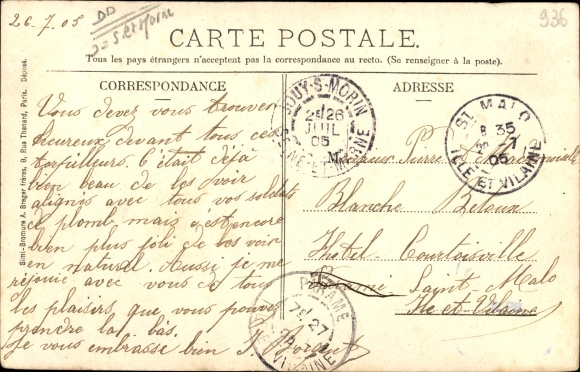 26.7.05
936
CARTE POSTALE.
Tous les pays étrangers n'acceptent pas la correspondance au recto. (Se renseigner à la poste).
CORRESPONDANCE
Vous devez vous trouver
heureux devant tous ces
torpilleurs. C'était déjà
bien beau de les voir
alignés avec tous vos soldats
de plomb mais c'est encore
bien plus joli de les voir
en naturel. Aussi je me
réjouie avec vous de tous
les plaisirs que vous pouvez
prendre là bas.
Je vous embrasse bien
ADRESSE
Pierre
Blanche Beloux
Hôtel Courtoisville
Paramé Saint-Malo
Ile et Vilaine
JOUY-S-MORIN
2E 26
JUIL
05
SEINE-ET-MARNE
ST MALO
8 35
7
05
ILLE ET VILAINE
PARAMÉ
27
ILLE-ET-VILAINE
Simi-Bromure A. Breger frères, 9, Rue Thénard, Paris. Déposé.